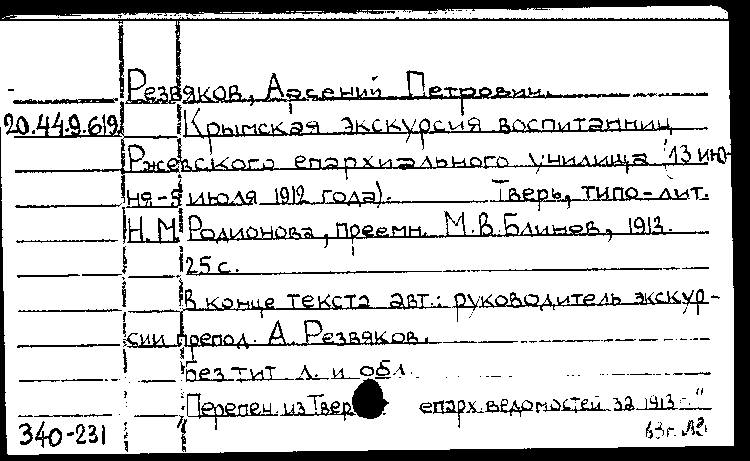 Резвяков, Арсений Петрович.
20.44.9.619 Крымская экскурсия воспитанниц
Ржевского епархиального училища (13 ию-
ня-5 июля 1912 года). Тверь, типо-лит.
Н.М. Родионова, преемн. М.В.Блинов, 1913.
25 с.
В конце текста авт.: руководитель экскур-
сии препод. А. Резвяков.
Без тит л. и обл.
Перепеч. из "Твер епарх. ведомостей за 1913 г."
340-231 63г.